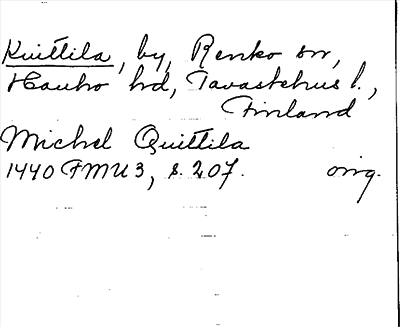 Kuittila, by, Renko sn,
Hauho hd, Tavastehus l.,
Finland
Michel Quittila
1440 FMU 3, s. 207. orig.